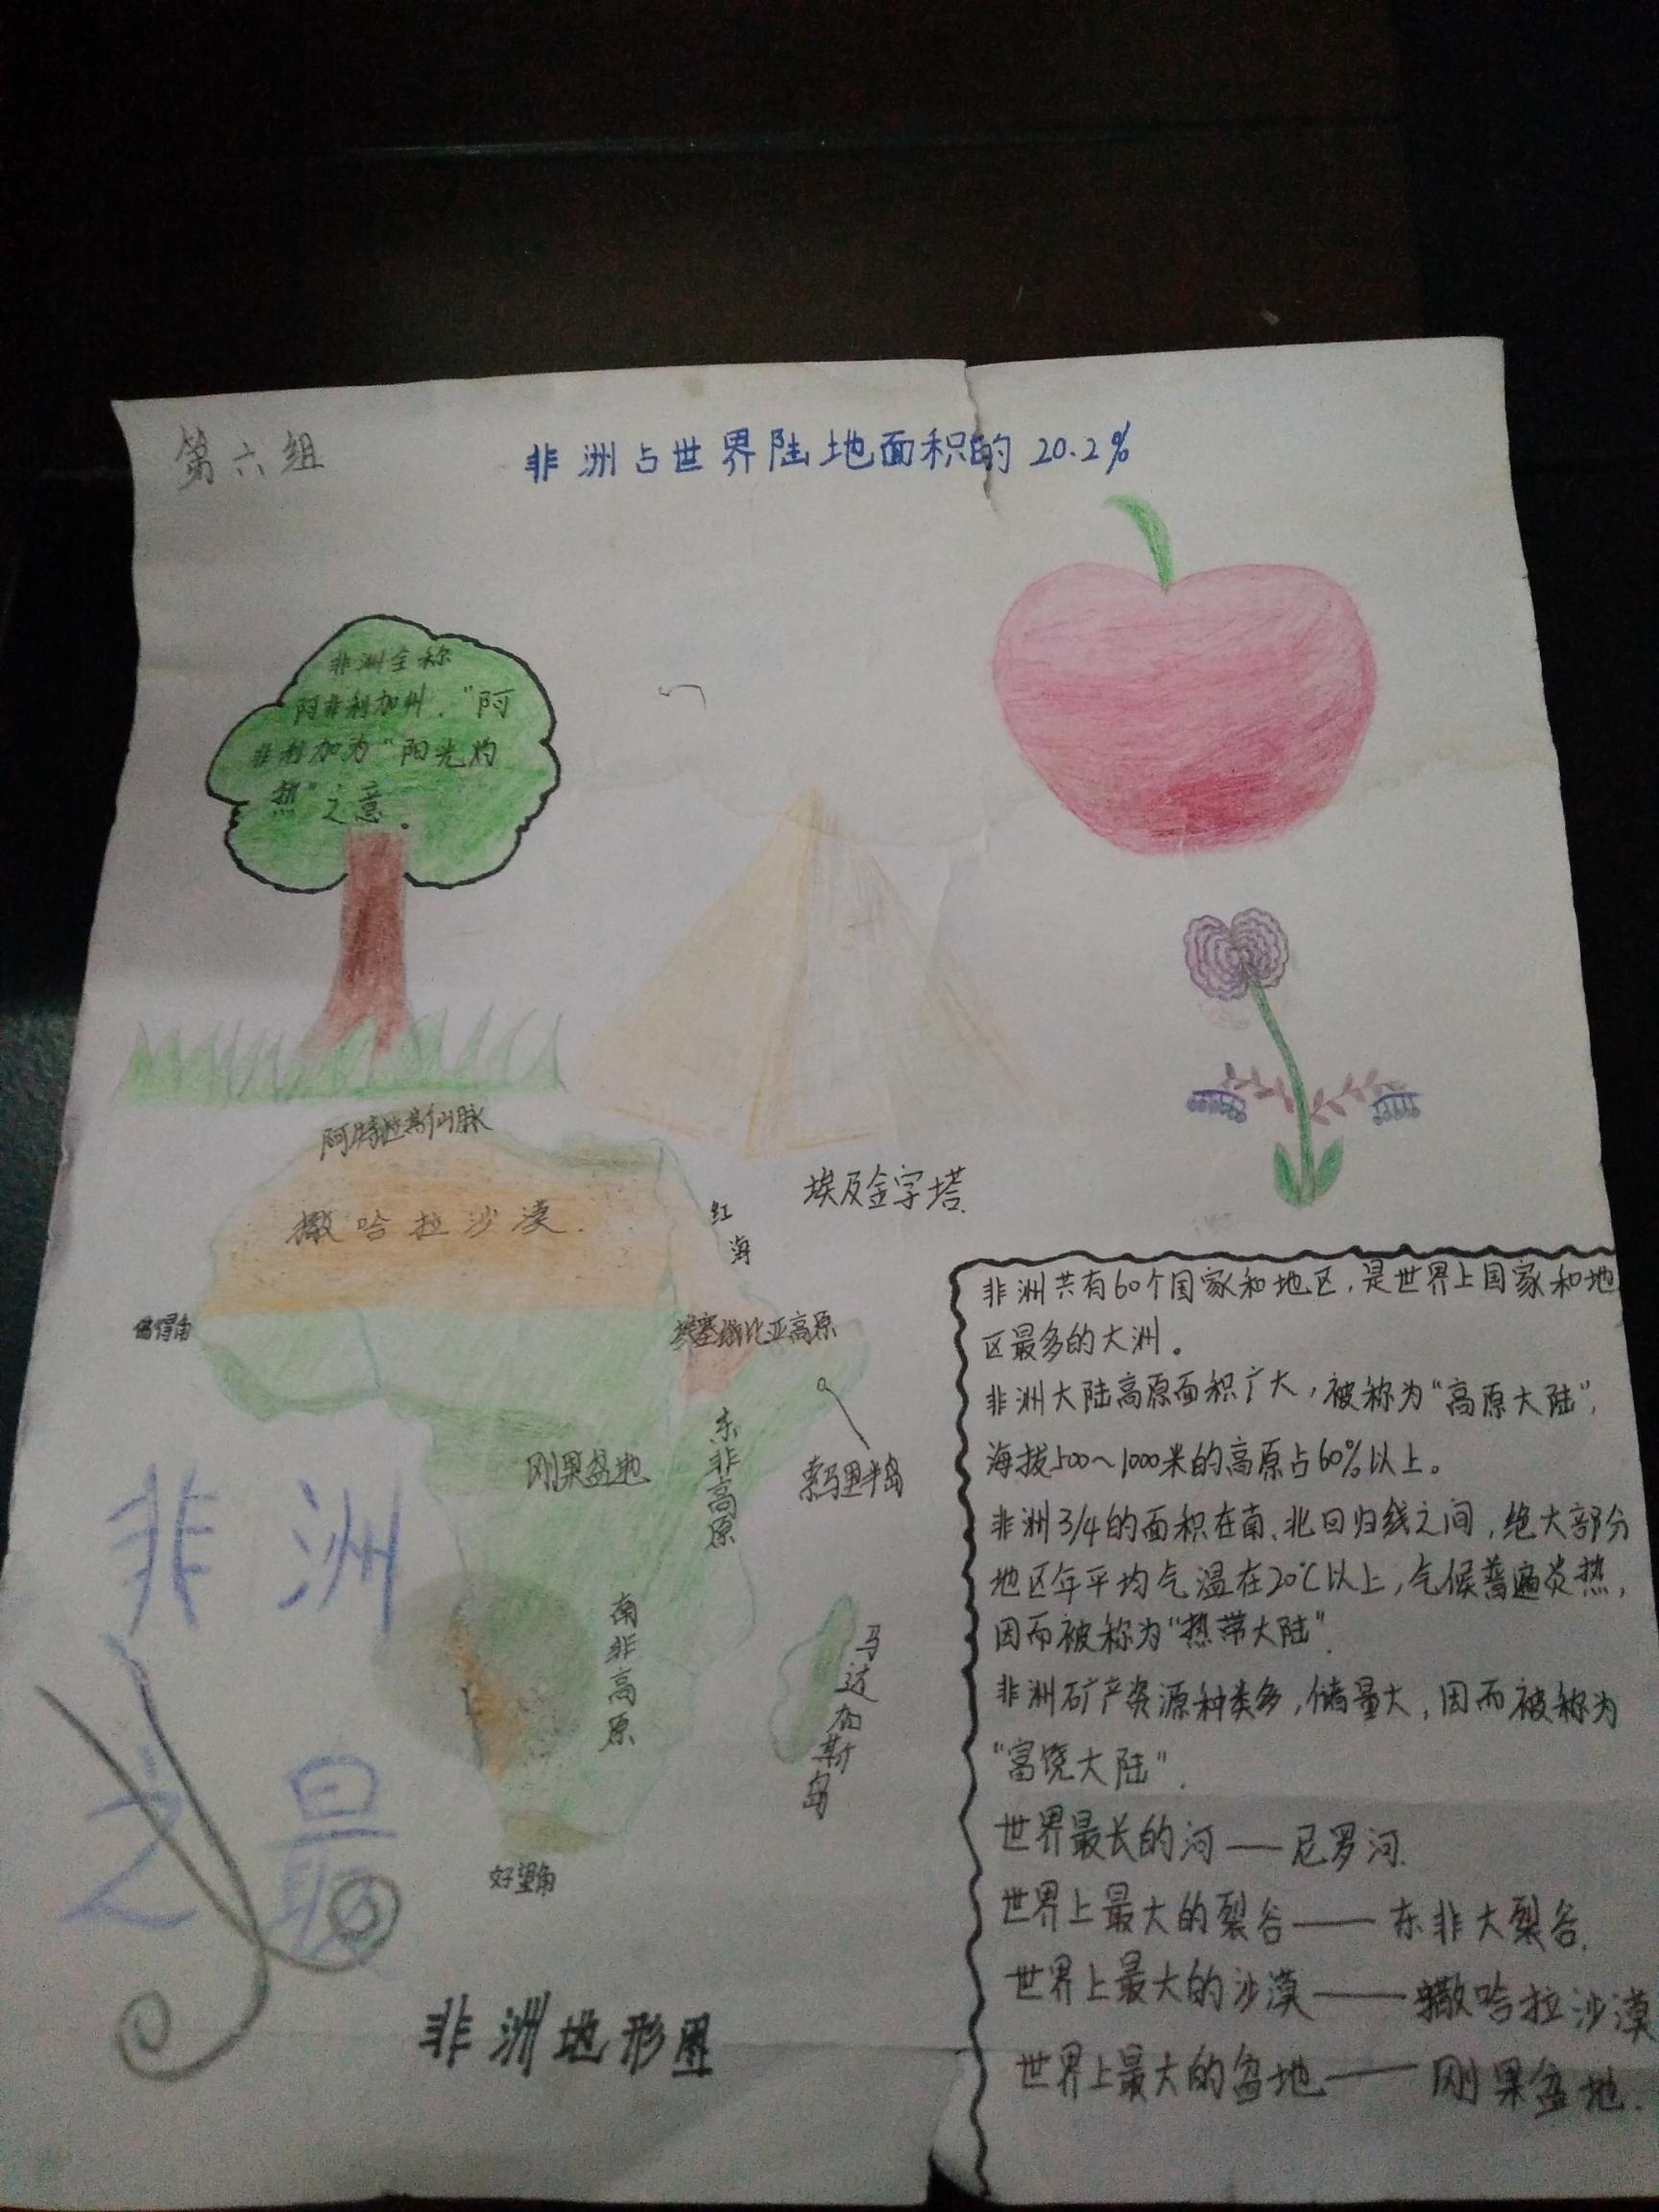 第六组
非洲占世界陆地面积的20.2%
非洲全称
阿非利加州."阿
非利加为"阳光灼
热"之意。
阿特拉斯山脉
撒哈拉沙漠.
红海
埃及金字塔.
佛得角
埃塞俄比亚高原
东非高原
刚果盆地
索马里半岛
南非高原
马达加斯岛
好望角
非洲
之最
非洲地形图
非洲共有60个国家和地区,是世界上国家和地
区最多的大洲。
非洲大陆高原面积广大,被称为"高原大陆",
海拔500~1000米的高原占60%以上。
非洲3/4的面积在南、北回归线之间,绝大部分
地区年平均气温在20℃以上,气候普遍炎热,
因而被称为"热带大陆".
非洲矿产资源种类多,储量大,因而被称为
"富饶大陆".
世界最长的河——尼罗河.
世界上最大的裂谷——东非大裂谷.
世界上最大的沙漠——撒哈拉沙漠
世界上最大的盆地——刚果盆地.